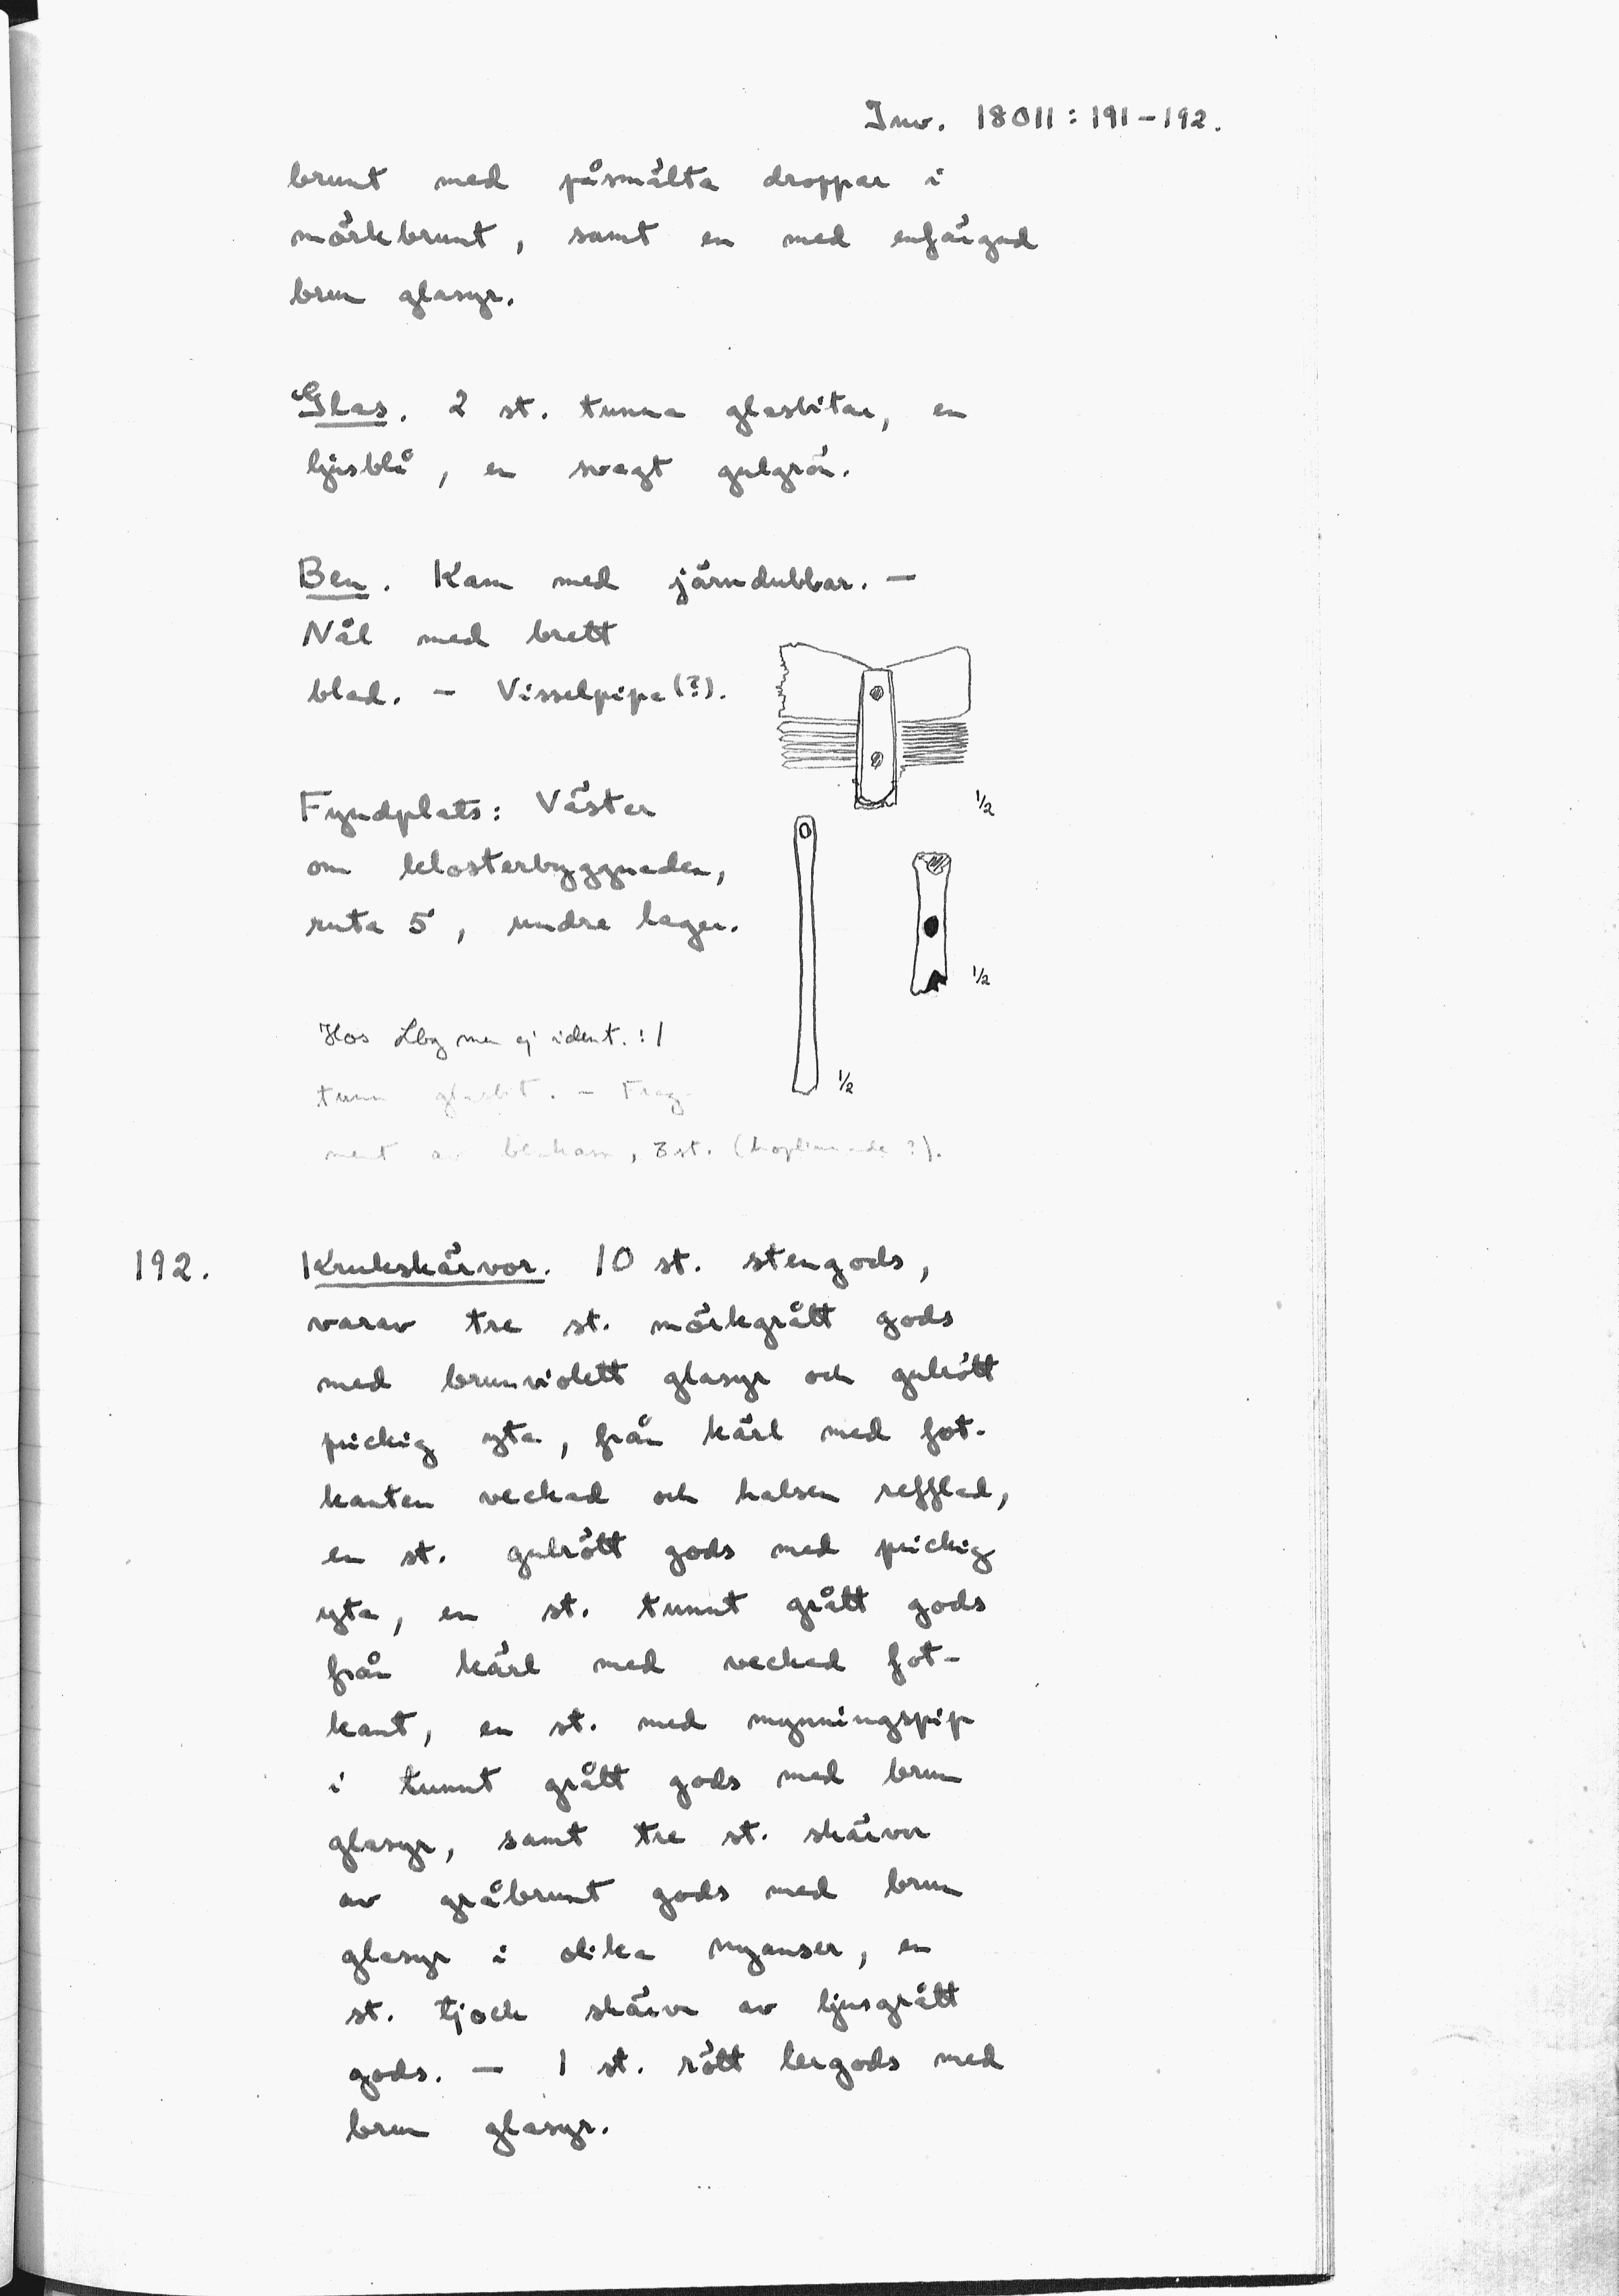 Inv. 18011: 191–192.
brunt med påsmälta droppar i
mörkbrunt, samt en med enfärgad
brun glasyr.
Glas. 2 st. tunna glasbitar, en
ljusblå, en svagt gulgrön.
Ben. Kam med järndubbar. –
Nål med brett
blad. – Visselpipa (?).
1/2
Fyndplats: Väster
om klosterbyggnaden,
ruta 5, undre lager.
1/2
Hos Lbg men ej ident.: 1
tunn glasbit. – Frag-
1/2
ment av benkam, 3 st. (hoplimmade?).
192. Krukskärvor. 10 st. stengods,
varav tre st. mörkgrått gods
med brunviolett glasyr och gulrött
prickig yta, från kärl med fot-
kanten veckad och halsen refflad,
en st. gulrött gods med prickig
yta, en st. tunnt grått gods
från kärl med veckad fot-
kant, en st. med mynningspip
i tunnt grått gods med brun
glasyr, samt tre st. skärvor
av gråbrunt gods med brun
glasyr i olika nyanser, en
st. tjock skärva av ljusgrått
gods. – 1 st. rött lergods med
brun glasyr.